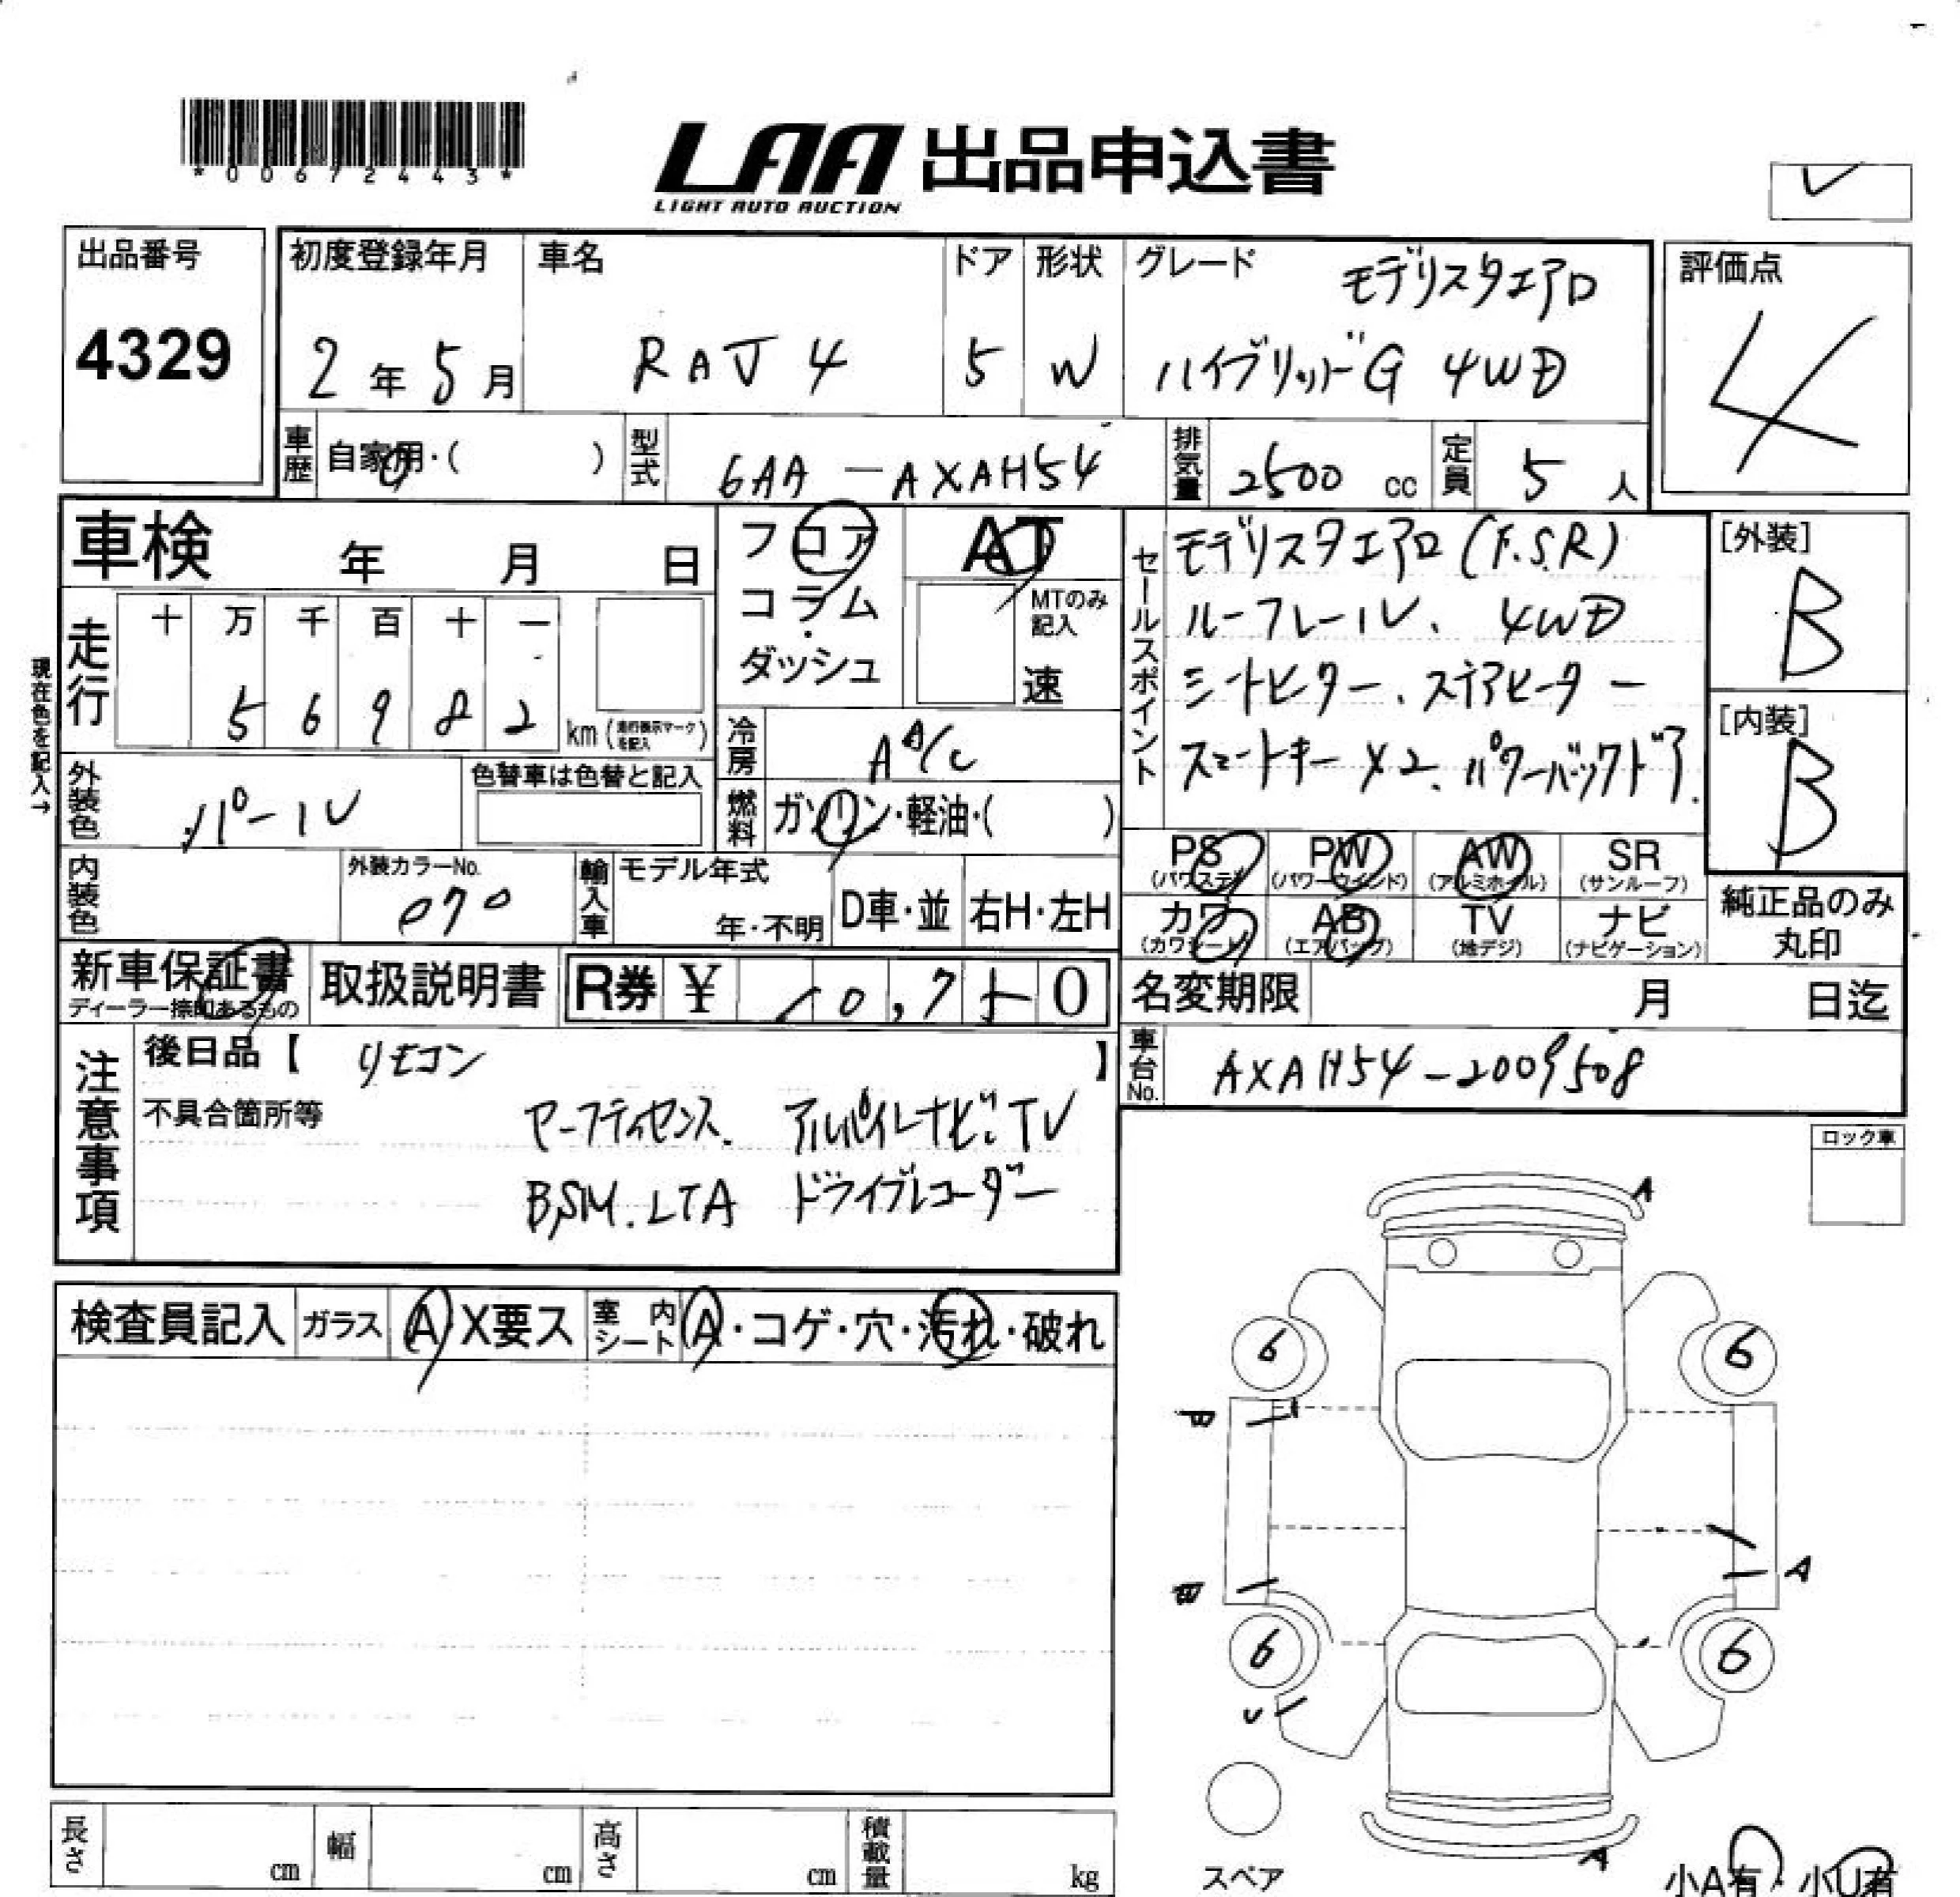 *00672443*
LAA 出品申込書
LIGHT AUTO AUCTION
出品番号
4329
初度登録年月
2年5月
車名
RAV4
ドア
5
形状
W
グレード
モデリスタエアロ
ハイブリッドG 4WD
評価点
4
車歴
自家用・( )
型式
6AA-AXAH54
排気量
2500 cc
定員
5人
車検 年 月 日
現在色を記入→
走行
十 万 千 百 十 一
5 6 9 8 2
km(走行表示マークを記入)
フロア
コラム
・
ダッシュ
AT
MTのみ
記入
速
冷房
AA/C
燃料
ガソリン・軽油・( )
外装色
パール
色替車は色替と記入
内装色
外装カラーNo.
070
輸入車
モデル年式
年・不明
D車・並
右H・左H
セールスポイント
モデリスタエアロ(F.S.R)
ルーフレール、4WD
シートヒーター、ステアヒーター
スマートキー×2、パワーバックドア.
[外装]
B
[内装]
B
PS
(パワステ)
PW
(パワーウインド)
AW
(アルミホイル)
SR
(サンルーフ)
カワ
(カワシート)
AB
(エアバッグ)
TV
(地デジ)
ナビ
(ナビゲーション)
純正品のみ
丸印
新車保証書
ディーラー捺印あるもの
取扱説明書
R券 ¥ 10,750
名変期限 月 日迄
車台No.
AXAH54-2009508
注意事項
後日品【 リモコン 】
不具合箇所等
セーフティセンス. アルパインナビ.TV
BSM.LTA ドライブレコーダー
ロック車
検査員記入
ガラス
A X要ス
室内シート
A・コゲ・穴・汚れ・破れ
A
6 6
B
A
6 6
A
スペア
小A有・小U有
長さ cm
幅 cm
高さ cm
積載量 kg